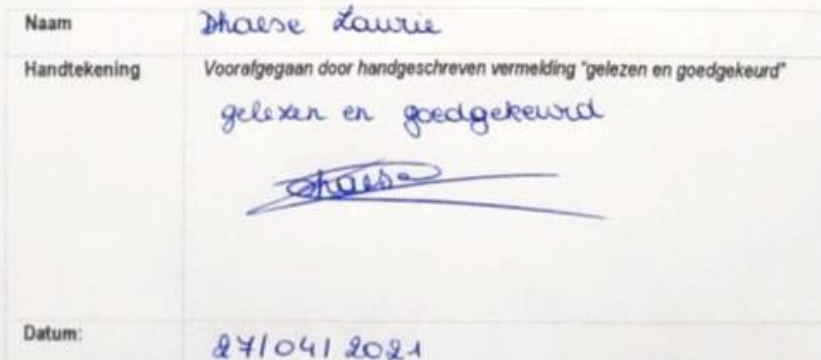 Naam Dhaese Laurie
Handtekening Voorafgegaan door handgeschreven vermelding "gelezen en goedgekeurd"
gelezen en goedgekeurd
Dhaese
Datum: 27/04/2021